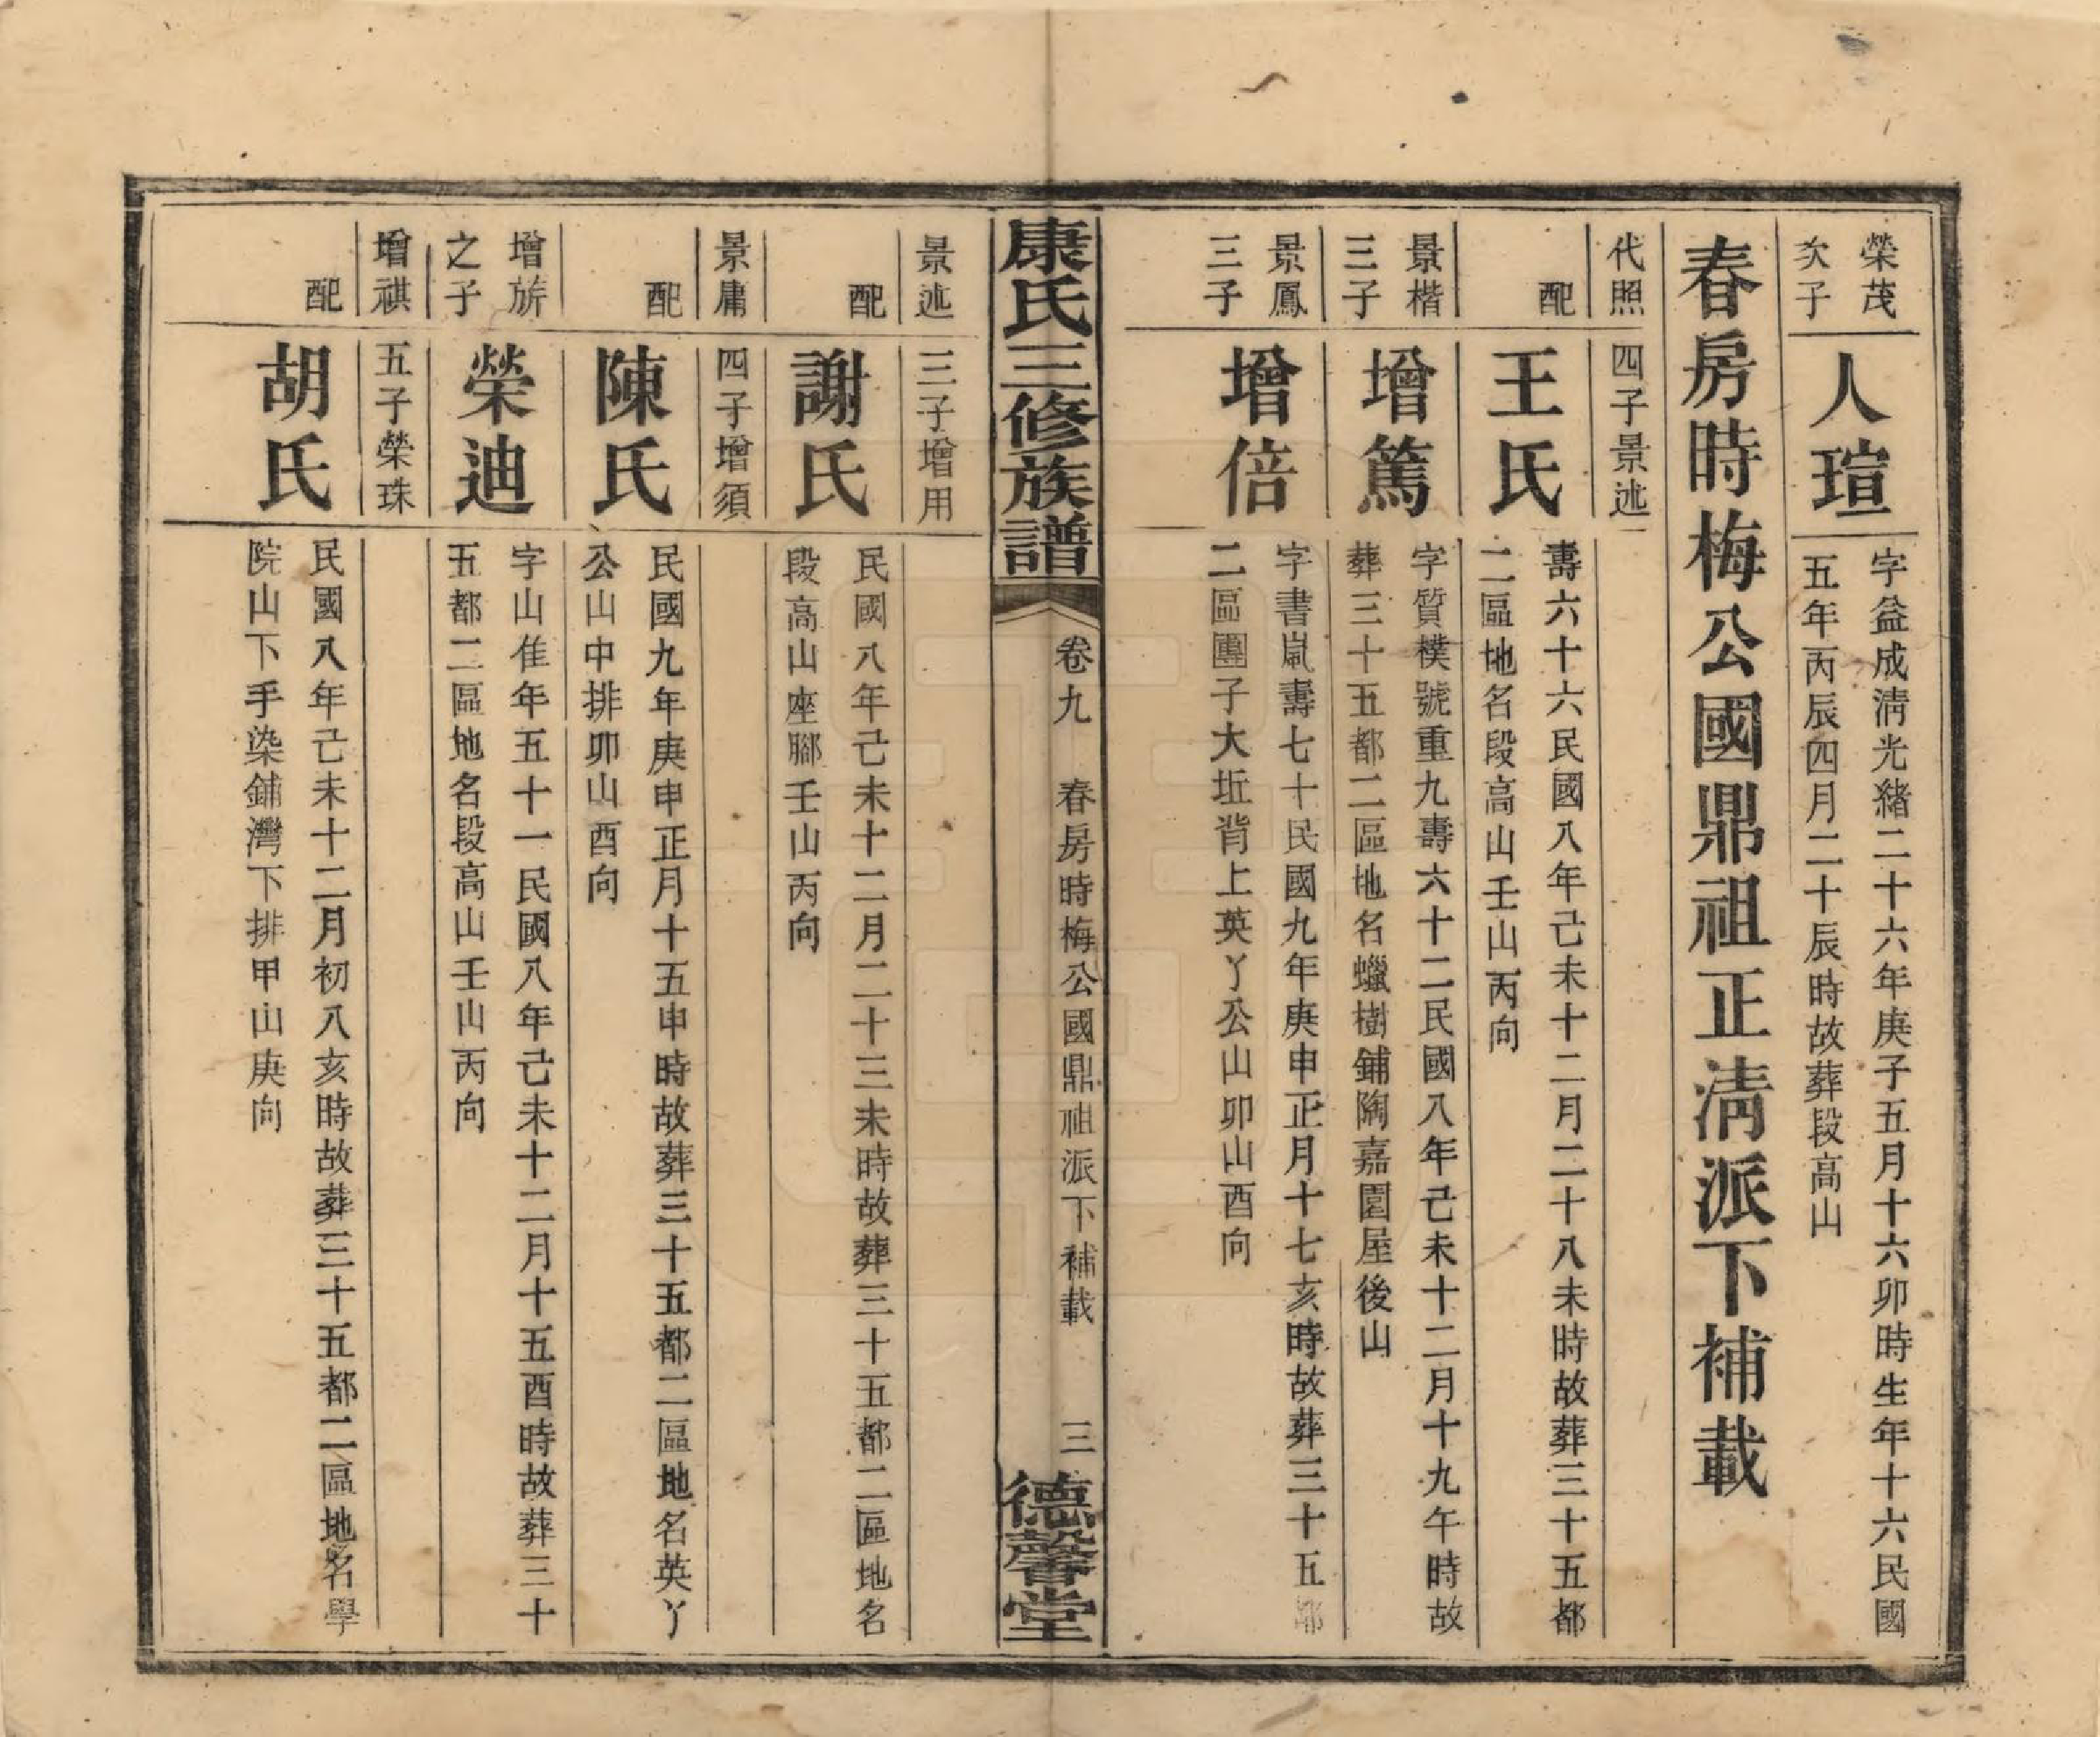 榮茂
次子
人瑄
字益成淸光緒二十六年庚子五月十六卯時生年十六民國
五年丙辰四月二十辰時故葬段高山
春房時梅公國鼎祖正淸派下補載
代照
四子景述
配
王氏
壽六十六民國八年己未十二月二十八未時故葬三十五都
二區地名段高山壬山丙向
景楷
三子
增篤
字質樸號重九壽六十二民國八年己未十二月十九午時故
葬三十五都二區地名蠟樹鋪陶嘉園屋後山
景鳳
三子
增倍
字書嵐壽七十民國九年庚申正月十七亥時故葬三十五都
二區團子大坵背上英丫公山卯山酉向
康氏三修族譜
卷九
春房時梅公國鼎祖派下補載
三
德馨堂
景述
三子增用
配
謝氏
民國八年己未十二月二十三未時故葬三十五都二區地名
段高山座腳壬山丙向
景庸
四子增須
配
陳氏
民國九年庚申正月十五申時故葬三十五都二區地名英丫
公山中排卯山酉向
增旂
之子
榮迪
字山隹年五十一民國八年己未十二月十五酉時故葬三十
五都二區地名段高山壬山丙向
增祺
五子榮珠
配
胡氏
民國八年己未十二月初八亥時故葬三十五都二區地名學
院山下手染鋪灣下排甲山庚向